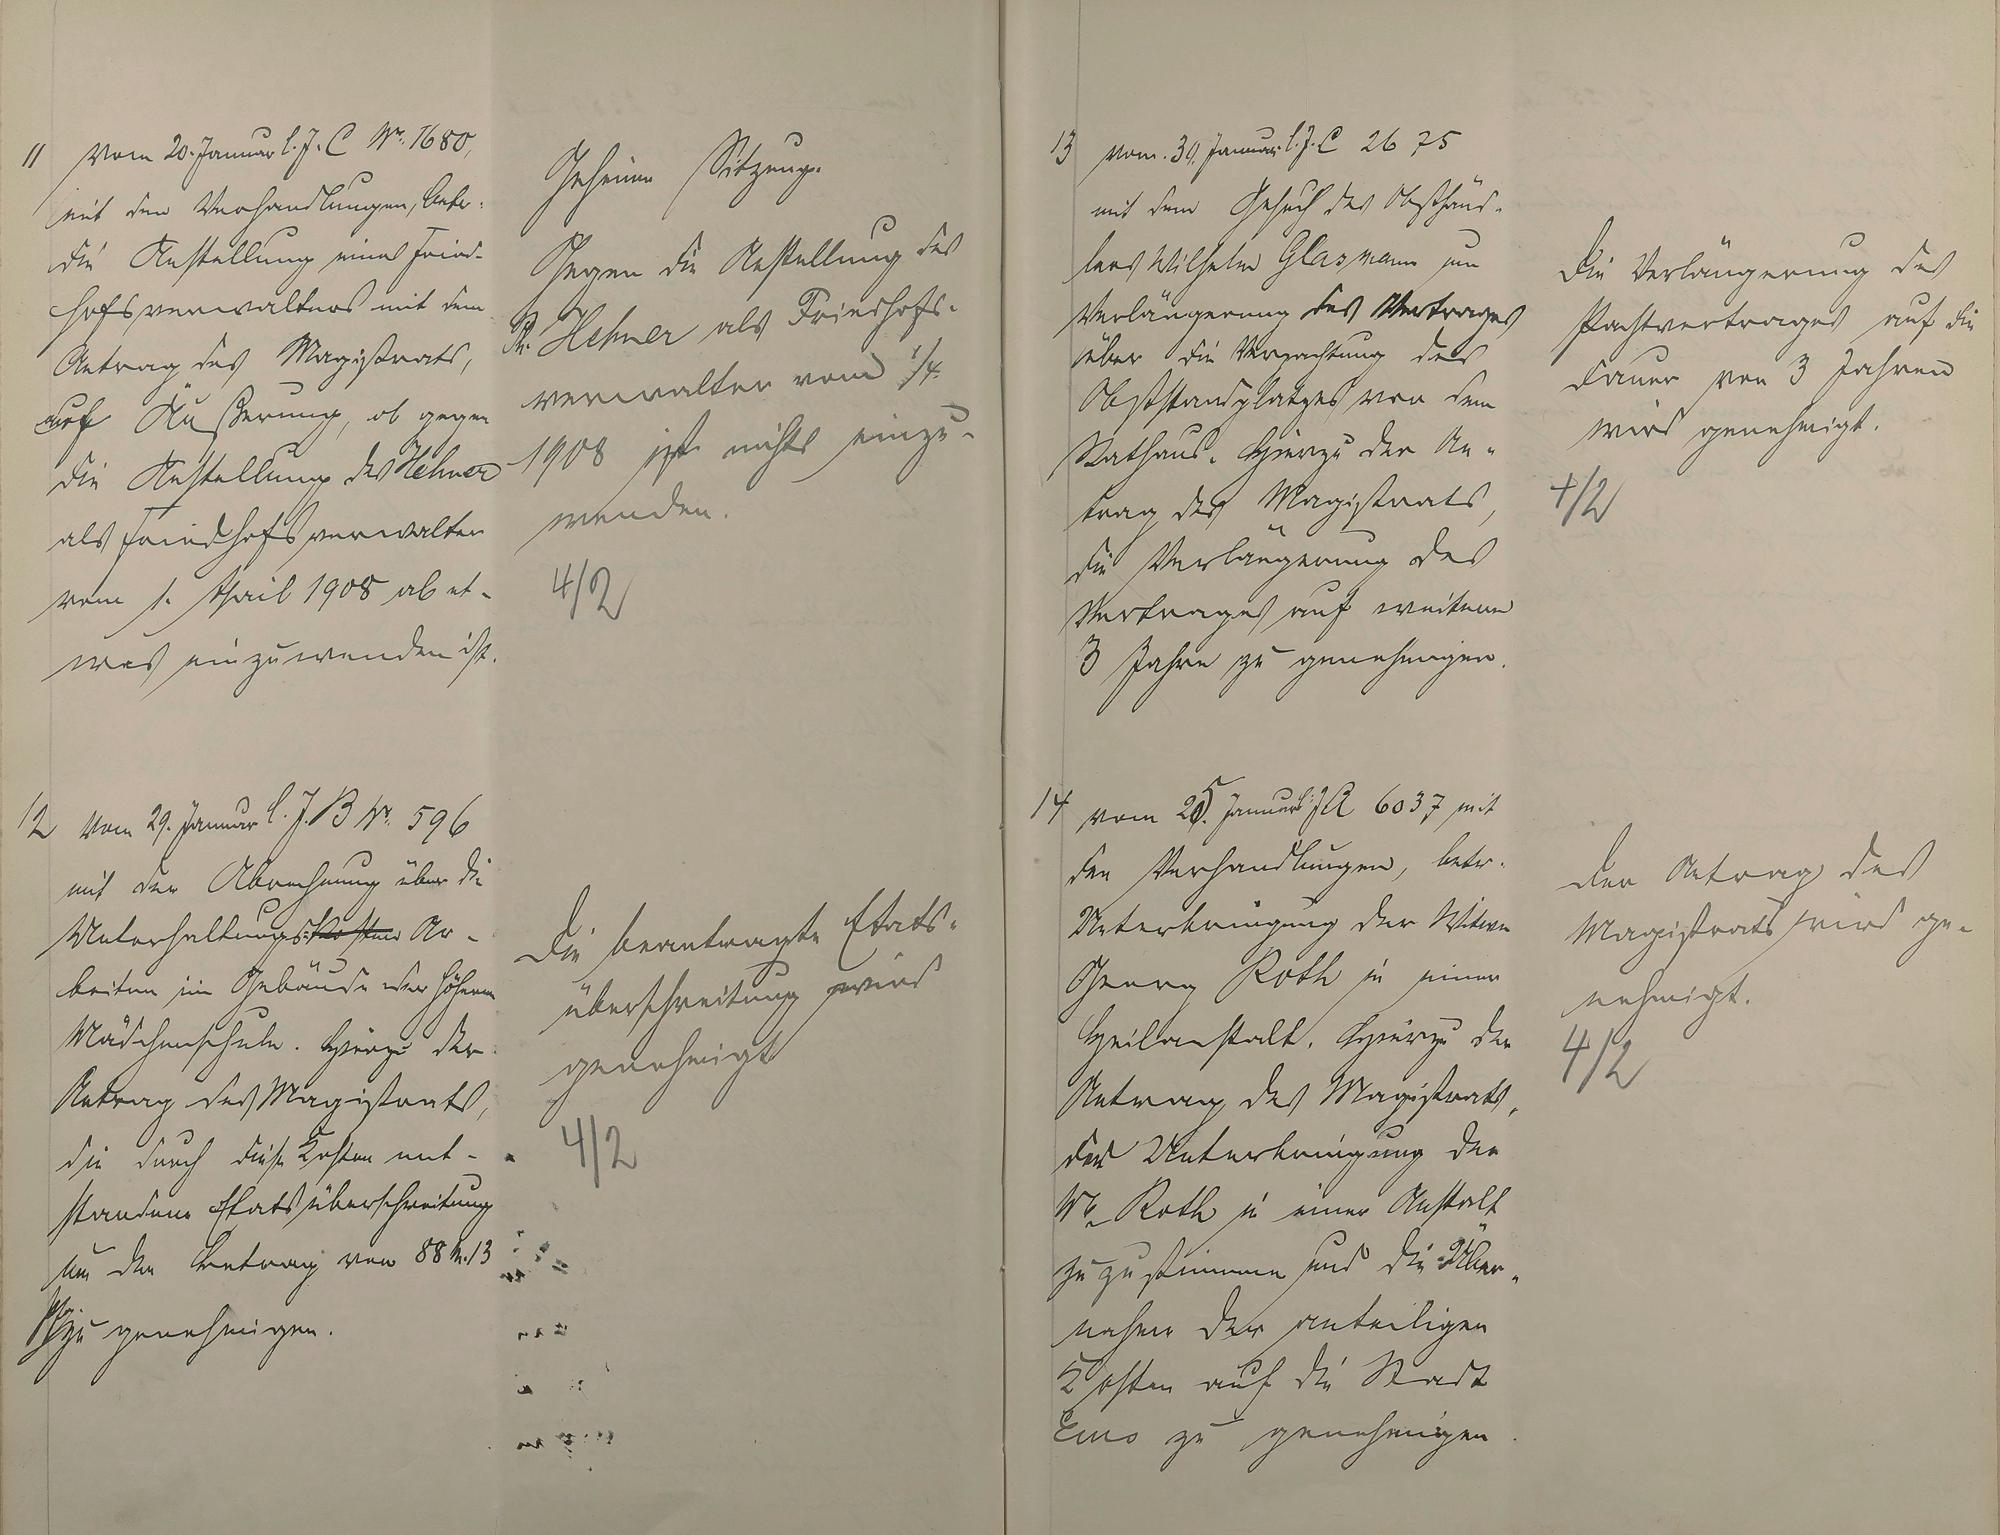 11 Vom 20. Januar l. J. C Nr. 1680,
mit den Verhandlungen, betr.
die Anstellung eines Fried-
hofsverwalters mit dem
Antrag des Magistrats,
auf Äußerung, ob gegen
die Anstellung des Hehner
als Friedhofsverwalter
vom 1. April 1908 ab et-
was einzuwenden ist.
Geheime Sitzung.
Gegen die Anstellung des
Hehner als Friedhofs-
verwalter vom 1/4.
1908 ist nichts einzu-
wenden.
4/2
12 Vom 29. Januar l. J. B Nr. 596
mit der Abrechnung über die
Unterhaltungs-kosten Ar-
beiten im Gebäude der höheren
Mädchenschule. Hierzu der
Antrag des Magistrats,
die durch diese Kosten ent-
standene Etatsüberschreitung
um den Betrag von 88 M. 13
Pfg. zu genehmigen.
Die beantragte Etats-
überschreitung wird
genehmigt
4/2
13 vom 30. Januar l. J. C 2675
mit dem Gesuch des Obsthänd-
lers Wilhelm Glasmann um
Verlängerung des Vertrages
über die Verpachtung des
Obststandplatzes vor dem
Rathaus. Hierzu der An-
trag des Magistrats,
die Verlängerung des
Vertrages auf weitere
3 Jahre zu genehmigen.
Die Verlängerung des
Pachtvertrages auf die
Dauer von 3 Jahren
wird genehmigt.
4/2
14 vom 25. Januar l. J. A 6037 mit
den Verhandlungen, betr.
Unterbringung der Witwe
Georg Roth in einer
Heilanstalt. Hierzu der
Antrag des Magistrats,
der Unterbringung der
We. Roth in einer Anstalt
zuzustimmen und die Über-
nahme der anteiligen
Kosten auf die Stadt
Ems zu genehmigen.
Der Antrag des
Magistrats wird ge-
nehmigt.
4/2